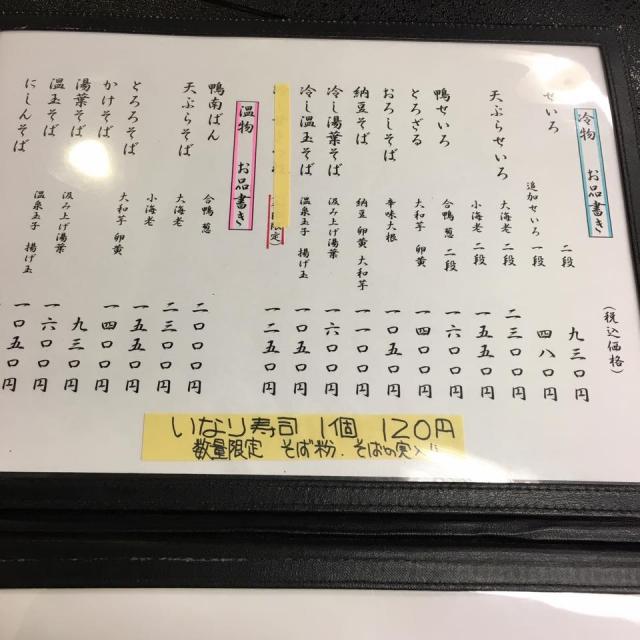 冷物 お品書き
(税込価格)
せいろ 二段 九三〇円
追加せいろ 一段 四八〇円
天ぷらせいろ 大海老 二段 二三〇〇円
小海老 二段 一五五〇円
鴨せいろ 合鴨 葱 二段 一六〇〇円
とろざる 大和芋 卵黄 一四〇〇円
おろしそば 辛味大根 一〇五〇円
納豆そば 納豆 卵黄 大和芋 一一〇〇円
冷し湯葉そば 汲み上げ湯葉 一六〇〇円
冷し温玉そば 温泉玉子 揚げ玉 一〇五〇円
限定 一二五〇円
温物 お品書き
鴨南ばん 合鴨 葱 二〇〇〇円
天ぷらそば 大海老 二三〇〇円
小海老 一五五〇円
とろろそば 大和芋 卵黄 一四〇〇円
かけそば 九三〇円
湯葉そば 汲み上げ湯葉 一六〇〇円
温玉そば 温泉玉子 揚げ玉 一〇五〇円
にしんそば
いなり寿司 1個 120円
数量限定 そば粉.そばの実入り!!